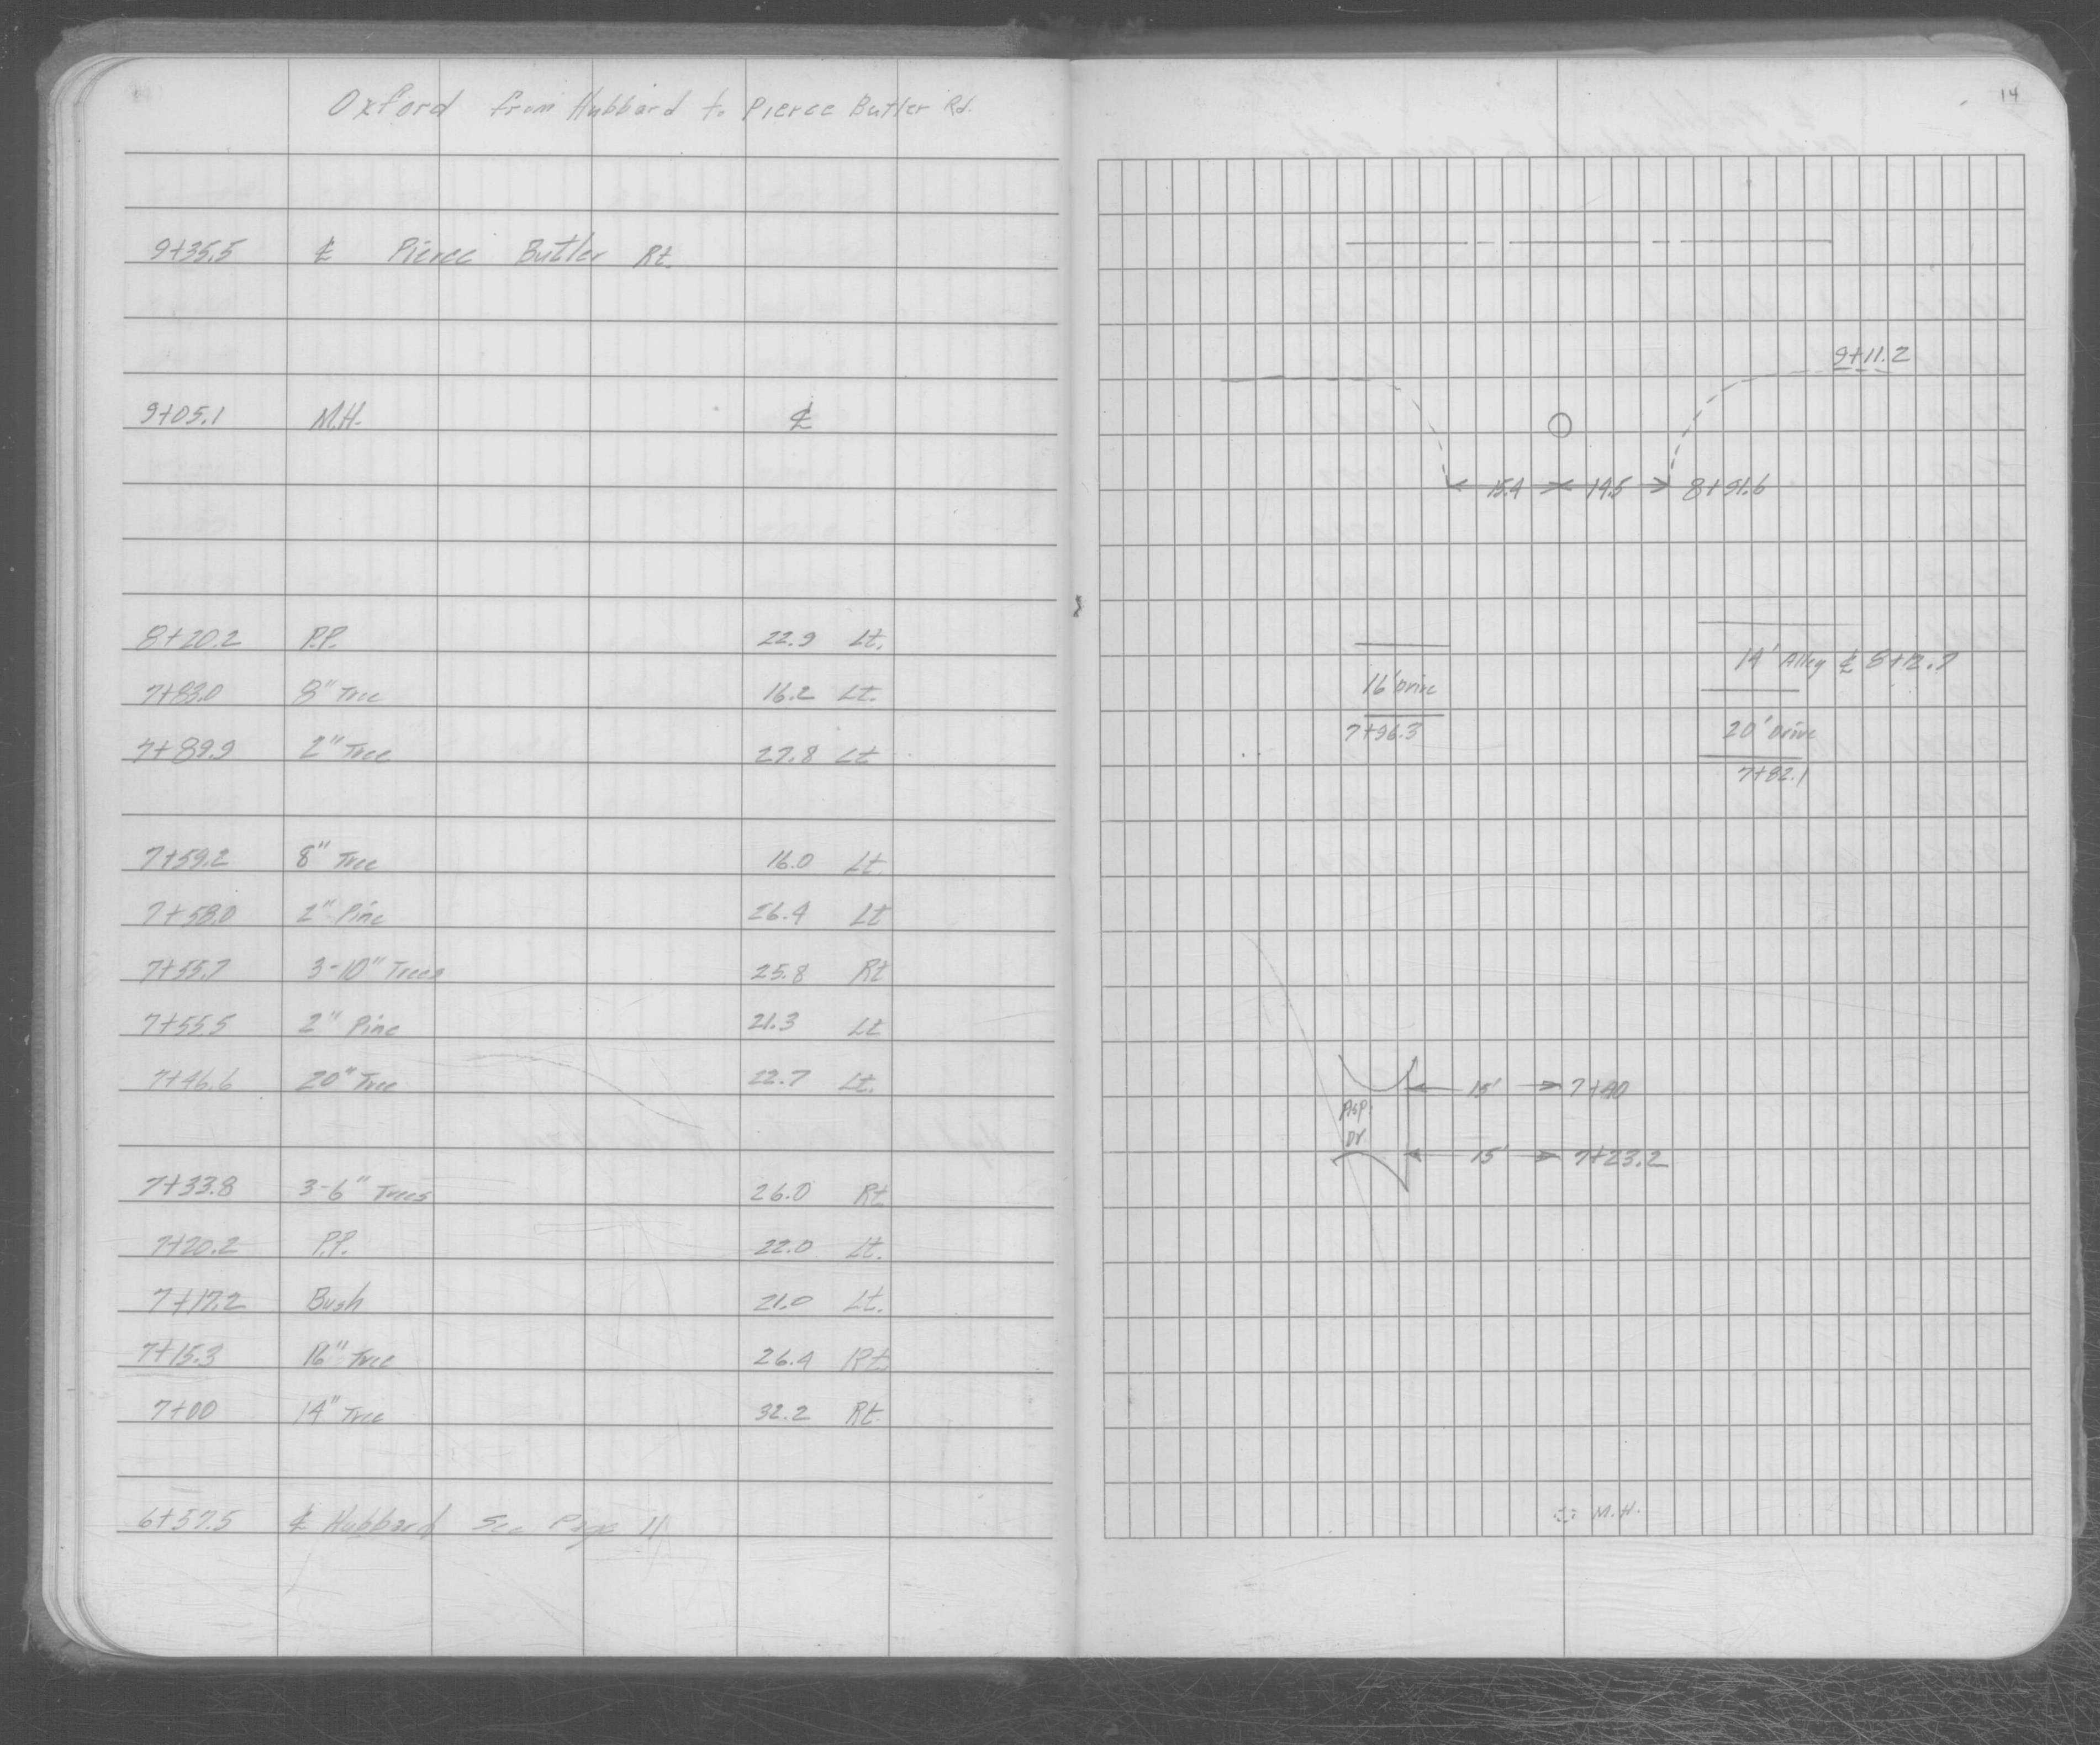 Oxford from Hubbard to Pierce Butler Rd.
9+35.5 ℄ Pierce Butler Rt.
9+05.1 M.H. ℄
8+20.2 P.P. 22.9 Lt.
7+83.0 8" Tree 16.2 Lt.
7+89.9 2" Tree 27.8 Lt
7+59.2 8" Tree 16.0 Lt.
7+58.0 2" Pine 26.4 Lt
7+55.7 3-10" Trees 25.8 Rt
7+55.5 2" Pine 21.3 Lt
7+46.6 20" Tree 22.7 Lt.
7+33.8 3-6" Trees 26.0 Rt
7+20.2 P.P. 22.0 Lt.
7+17.2 Bush 21.0 Lt.
7+15.3 16" Tree 26.4 Rt.
7+00 14" Tree 32.2 Rt.
6+57.5 ℄ Hubbard See Page 11
14
9+11.2
15.4 14.5 8+91.6
14' Alley ℄ 8+12.7
16' Drive
7+96.3
20' Drive
7+82.1
15' 7+40
Asp.
Dr.
15' 7+23.2
M.H.